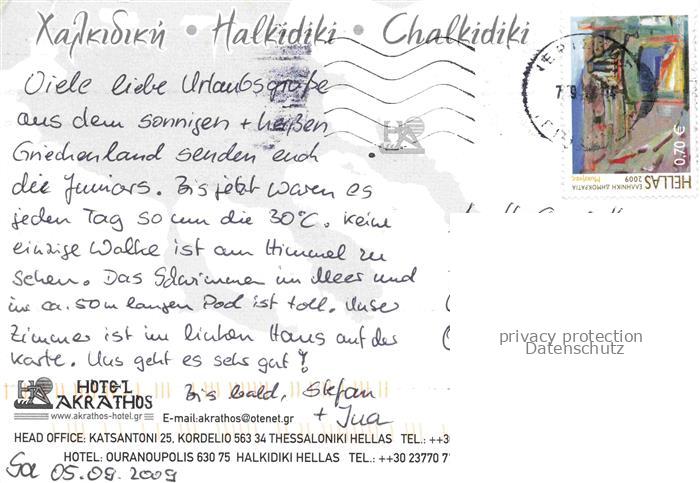 Χαλκιδική • Halkidiki • Chalkidiki
Viele liebe Urlaubsgrüße
aus dem sonnigen + heißen
Griechenland senden euch
die Juniors. Bis jetzt waren es
jeden Tag so um die 30°C. Keine
einzige Wolke ist am Himmel zu
sehen. Das Schwimmen im Meer und
im ca. 50m langen Pool ist toll. Unser
Zimmer ist im linken Haus auf der
Karte. Uns geht es sehr gut!
Bis bald, Stefan
+ Ina
HOTEL
AKRATHOS
www.akrathos-hotel.gr
E-mail:akrathos@otenet.gr
HEAD OFFICE: KATSANTONI 25. KORDELIO 563 34 THESSALONIKI HELLAS TEL.: ++3
HOTEL: OURANOUPOLIS 630 75 HALKIDIKI HELLAS TEL.: ++30 23770 7
Sa 05.09.2009
0,70 €
HELLAS
ΕΛΛΗΝΙΚΗ ΔΗΜΟΚΡΑΤΙΑ
2009
privacy protection
Datenschutz